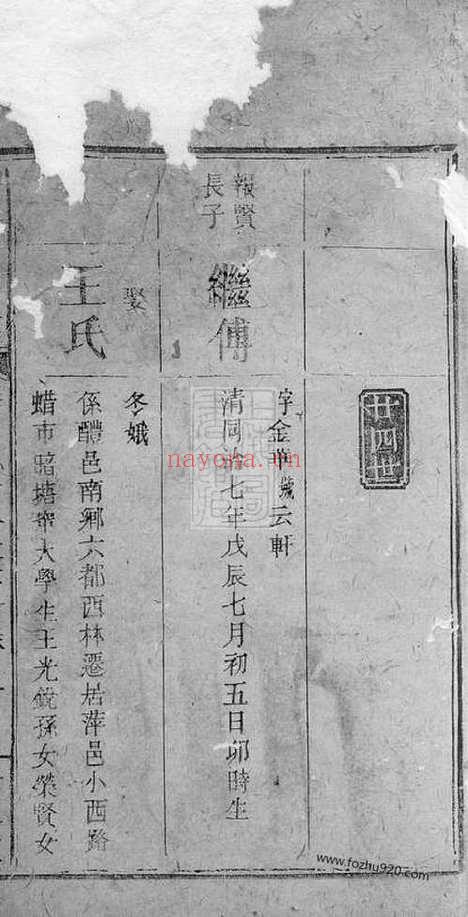 廿四世
報賢
長子
繼傅
字金華號云軒
清同治七年戊辰七月初五日卯時生
娶
王氏
冬娥
係醴邑南鄉六都西林遷居萍邑小西路
蜡市暗塘 大學生王光 孫女榮賢女
nayona.cn
www.fozhu920.com